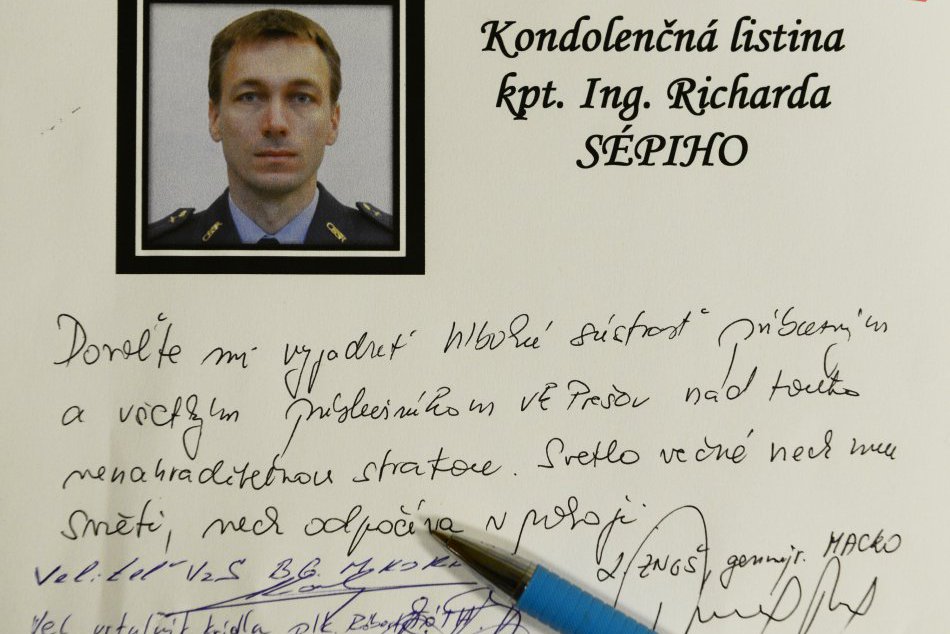 Kondolenčná listina
kpt. Ing. Richarda
SÉPIHO
Dovoľte mi vyjadriť hlbokú sústrasť príbuzným
a všetkým príslušníkom VK Prešov nad touto
nenahraditeľnou stratou. Svetlo večné nech mu
svieti, nech odpočíva v pokoji.
ZNGŠ, genmjr. MACKO
Veliteľ VzS B.G.
Vel. vrtuľník. krídla plk. Róbert